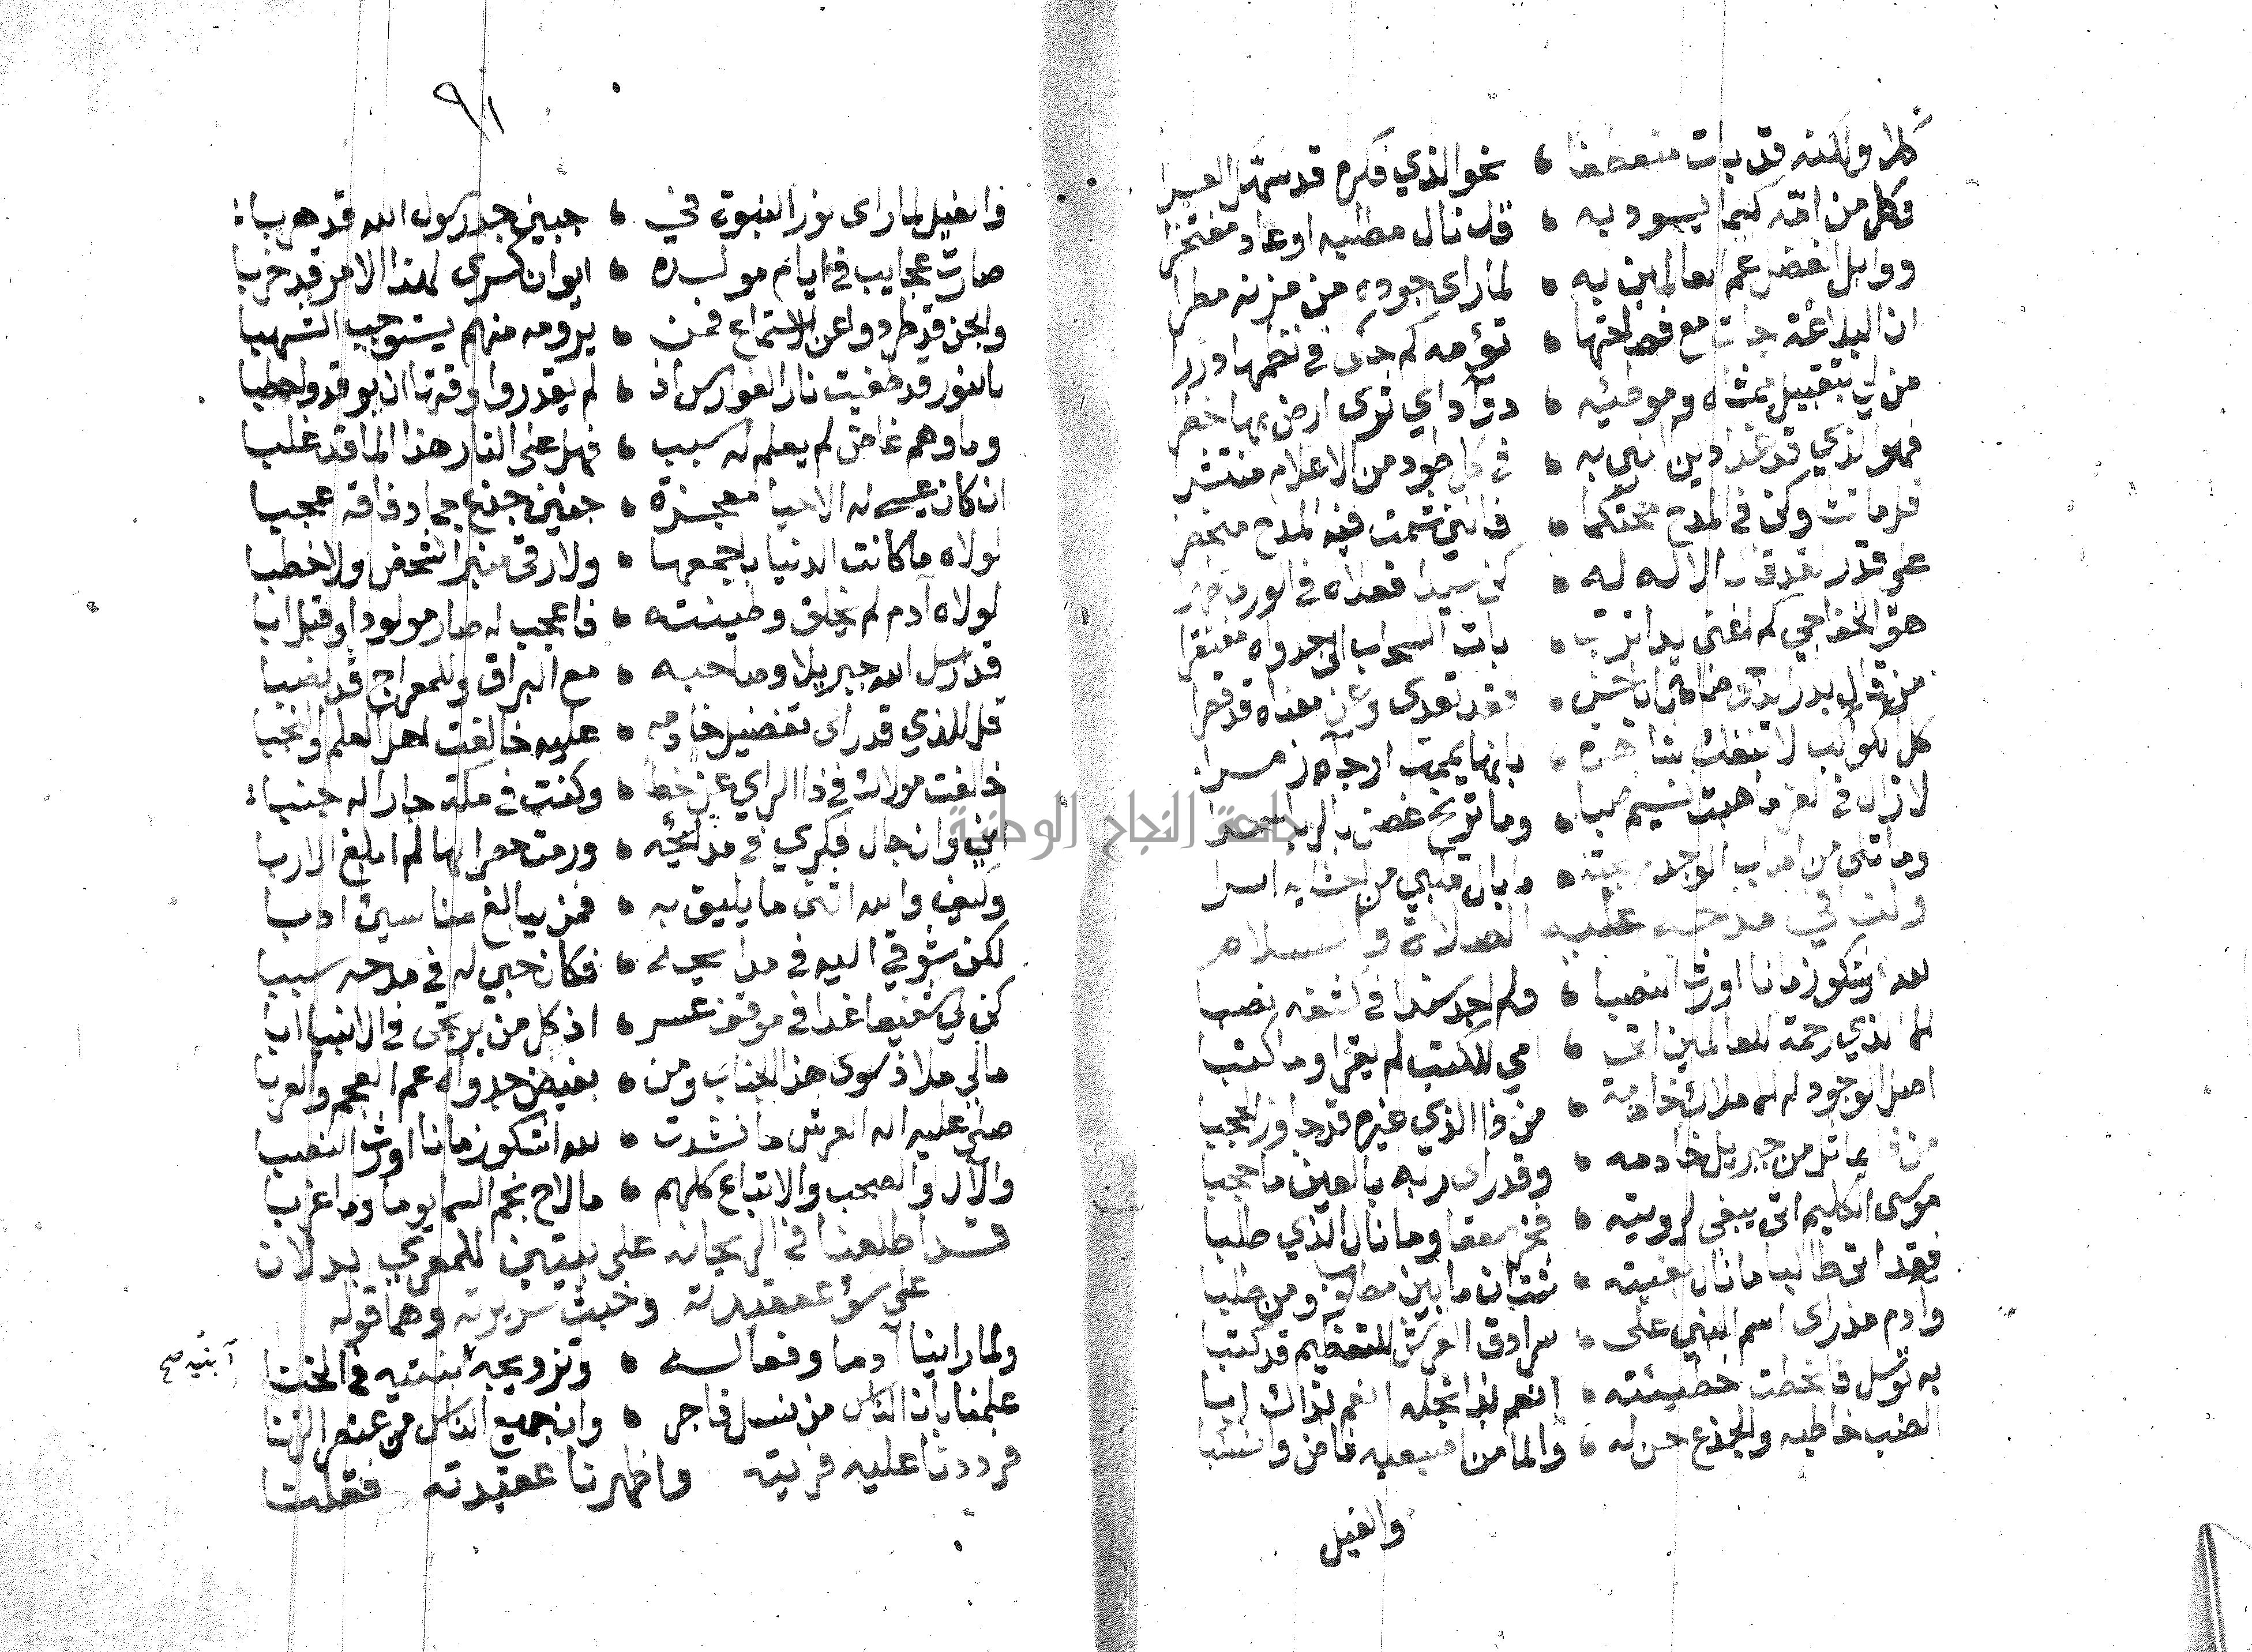 كلا ولكنه قد بات منعطفا ، نحو الذي فكره قد سهل العسرا
فكل من امّه كيما يسود به ، قد نال مطلبه او عاد مفتخرا
ووابل الفضل عم العالمين به ، لما راى جوده من مزنه مطرا
ان البلاغة جات مع فصاحتها ، تؤمه كم حكى في نظمها دررا
من لي بتقبيل ممشاه وموطئه ، اي ثرى ارض بها خطرا
فهو الذي قد غدا دين النبي به ، في كل طود من الاعلام منتشرا
قل ما تشا وكن في المدح محتكما ، فانني شمت فيه المدح منحصرا
على قدر ، كن سيدا فعلاه في الورى
هو الخفاجي كم اغنى يدا تربت ، بات السحاب الى جدواه مفتقرا
من قال بدر ، فقد تعدى وعن معناه قد قصرا
كل الكواكب لا تنفك ، بانها يممت ارجاه زمرا
لا زال في العز ما هبت نسيم صبا ، وما ترنح غصن بالربا سحرا
وما ، وبات قلبي من احشايه اسرا
ولنا في مدحه عليه الصلاة والسلام
لله اشكو زمانا اورث النصبا ، ولم اجد سندا في كشفه نصبا
الا الذي رحمة للعالمين اتى ، امي للكتب لم يقرا وما كتبا
اصل الوجود له الاملاك خادمة ، من ذا الذي غيره قد جاوز الحجبا
من ذا يماثل من جبريل خادمه ، وقد راى ربه بالعين ما حجبا
موسى الكليم اتى يبغي لرويته ، فخر صعقا وما نال الذي طلبا
فقد اتى طالبا ما نال بغيته ، شتان ما بين مطلوب ومن طلبا
وادم مذ راى اسم النبي على ، سرادق العرش للتعظيم قد كتبا
به توسل فانحطت خطيئته ، انعم بذا نجله انعم بذاك ابا
الضب خاطبه والجذع حن له ، والما من اصبعيه فاض وانسكبا
والفيل
٩١
فالفيل لما راى نور النبوة في ، جبين جد رسول الله قد هربا
صارت عجايب في ايام مولده ، ايوان كسرى لهذا الامر قد خربا
والجن قد طردوا عن الاستماع فمن ، يرومه منهم يستوجب الشهبا
بالنور قد طفيت نار الفوارس اذ ، لم يقدروا وقتها ان يوقدوا حطبا
وماوهم غاض لم يعلم له سبب ، فهل على النار هذا الما قد غلبا
ان كان عيسى له الاحيا معجزة ، حنين جذع جماد فاقه عجبا
لولاه ما كانت الدنيا باجمعها ، ولا رقى منبرا شخص ولا خطبا
لولاه آدم لم يخلق وطينته ، فاعجب له صار مولودا وقبل ابا
قد ارسل الله جبريلا وصاحبه ، مع البراق وللمعراج قد نصبا
قل للذي قد راى تفضيل خادمه ، عليه خالفت اهل العلم والنجبا
خالفت مولاك في ذا الراي عن خطا ، وكنت في مكة جارا له جنبا
اني وان جال فكري في مدائحه ، ورمت حصرا لها لم ابلغ الاربا
وكيف والله اثنى ما يليق به ، فمن يبالغ منا سين ادبا
لكن شوقي اليه في مدايحه ، فكان حبي له في مدحه سببا
كن لي شفيعا غدا في موقف عسر ، اذ كل من يرتجى في الانبيا ابى
مالي ملاذ سوى هذا الجناب ومن ، بفيض جدواه عم العجم والعربا
صلى عليه اله العرش ما نشدت ، لله اشكو زمانا اورث النصبا
والآل والصحب والاتباع كلهم ، ما لاح نجم السما يوما وما غربا
قد اطلعنا في الريحانه على بيتين للمعري يدلان
على سؤ عقيدته وخبث سريرته وهما قوله
ولما راينا آدما وفعاله ، وتزويجه ابنتيه في الخنا
آ بنيه صح
علمنا بان الناس من نسل فاجر ، وان جميع الناس من عنصر الزنا
فرددنا عليه فريته واظهرنا عقيدته فقلنا
جامعة النجاح الوطنية